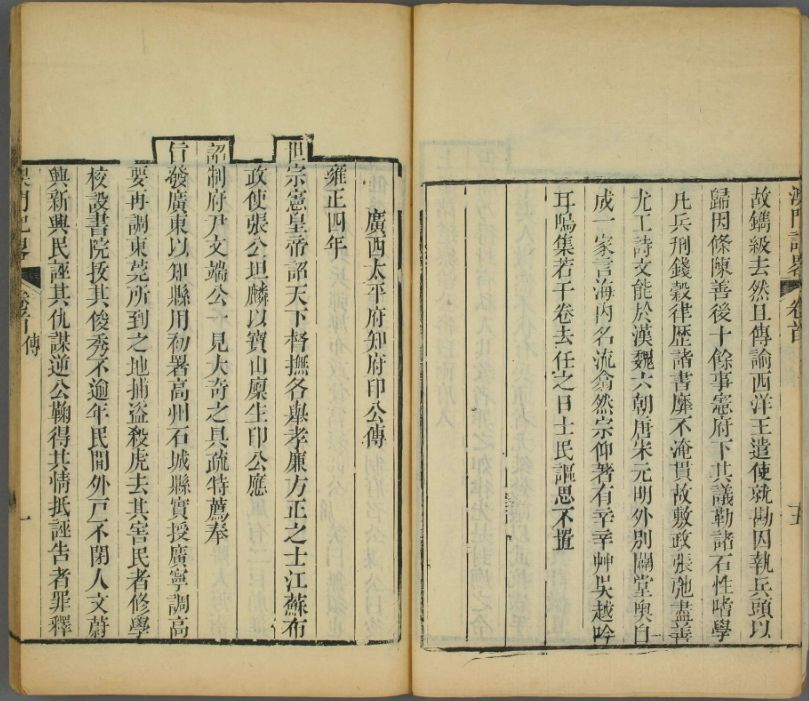 澳門記畧 卷首 五
故鐫級去然且傳諭西洋王遣使就勘囚執兵頭以
歸因條陳善後十餘事憲府下其議勒諸石性嗜學
凡兵刑錢穀律歷諸書靡不淹貫故敷政張弛盡善
尤工詩文能於漢魏六朝唐宋元明外別闢堂奧自
成一家言海內名流翕然宗仰著有幸幸艸吳越吟
耳鳴集若干卷去任之日士民謳思不置
廣西太平府知府印公傳
雍正四年
世宗憲皇帝詔天下督撫各舉孝廉方正之士江蘇布
政使張公坦麟以寶山廩生印公應
詔制府尹文端公一見大奇之具疏特薦奉
旨發廣東以知縣用初署高州石城縣實授廣寧調高
要再調東莞所到之地捕盜殺虎去其害民者修學
校設書院拔其俊秀不逾年民間外戶不閉人文蔚
興新興民誣其仇謀逆公鞠得其情抵誣告者罪釋
澳門記畧 卷首 傳 一